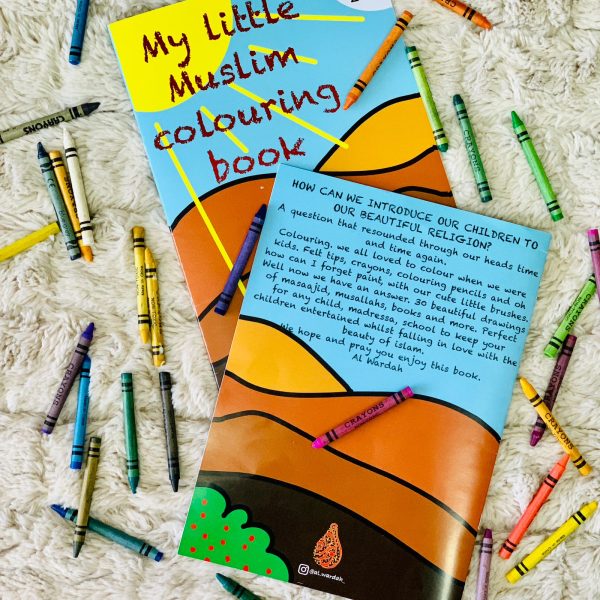 My little
Muslim
colouring
book
HOW CAN WE INTRODUCE OUR CHILDREN TO
OUR BEAUTIFUL RELIGION?
A question that resounded through our heads time
and time again.
Colouring. we all loved to colour when we were
kids. Felt tips, crayons, colouring pencils and oh
how can I forget paint, with our cute little brushes.
Well now we have an answer. 30 beautiful drawings
of masaajid, musallahs, books and more. Perfect
for any child, madressa, school to keep your
children entertained whilst falling in love with the
beauty of islam.
We hope and pray you enjoy this book.
Al Wardah
@al_wardah_
CRAYONS
CRAYONS
CRAYONS
CRAYONS
CRAYONS
CRAYONS